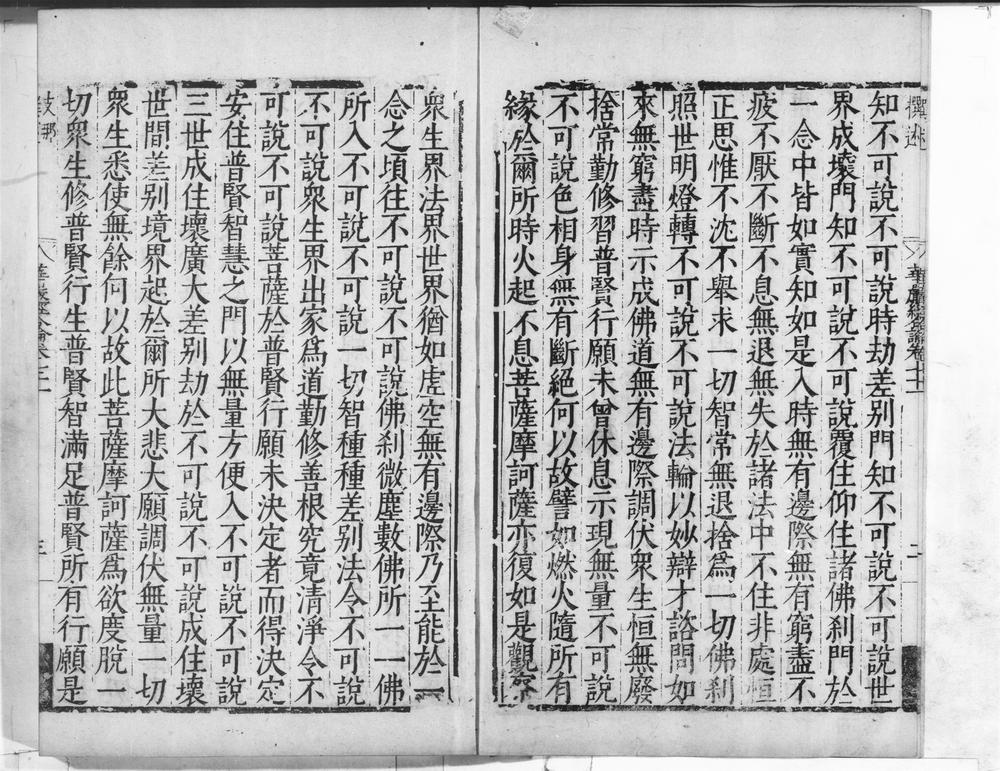 知不可說不可說時劫差别門知不可說不可說世
界成壞門知不可說不可說覆住仰住諸佛刹門於
一念中皆如實知如是入時無有邊際無有窮盡不
疲不厭不斷不息無退無失於諸法中不住非處恒
正思惟不沈不舉求一切智常無退捨爲一切佛刹
照世明燈轉不可說不可說法輪以妙辯才諮問如
來無窮盡時示成佛道無有邊際調伏衆生恒無廢
捨常勤修習普賢行願未曾休息示現無量不可說
不可說色相身無有斷絕何以故譬如燃火隨所有
緣於爾所時火起不息菩薩摩訶薩亦復如是觀察
衆生界法界世界猶如虛空無有邊際乃至能於一
念之頃往不可說不可說佛刹微塵數佛所一一佛
所入不可說不可說一切智種種差别法令不可說
不可說衆生界出家爲道勤修善根究竟清淨令不
可說不可說菩薩於普賢行願未決定者而得決定
安住普賢智慧之門以無量方便入不可說不可說
三世成住壞廣大差别劫於不可說不可說成住壞
世間差别境界起於爾所大悲大願調伏無量一切
衆生悉使無餘何以故此菩薩摩訶薩爲欲度脫一
切衆生修普賢行生普賢智滿足普賢所有行願是